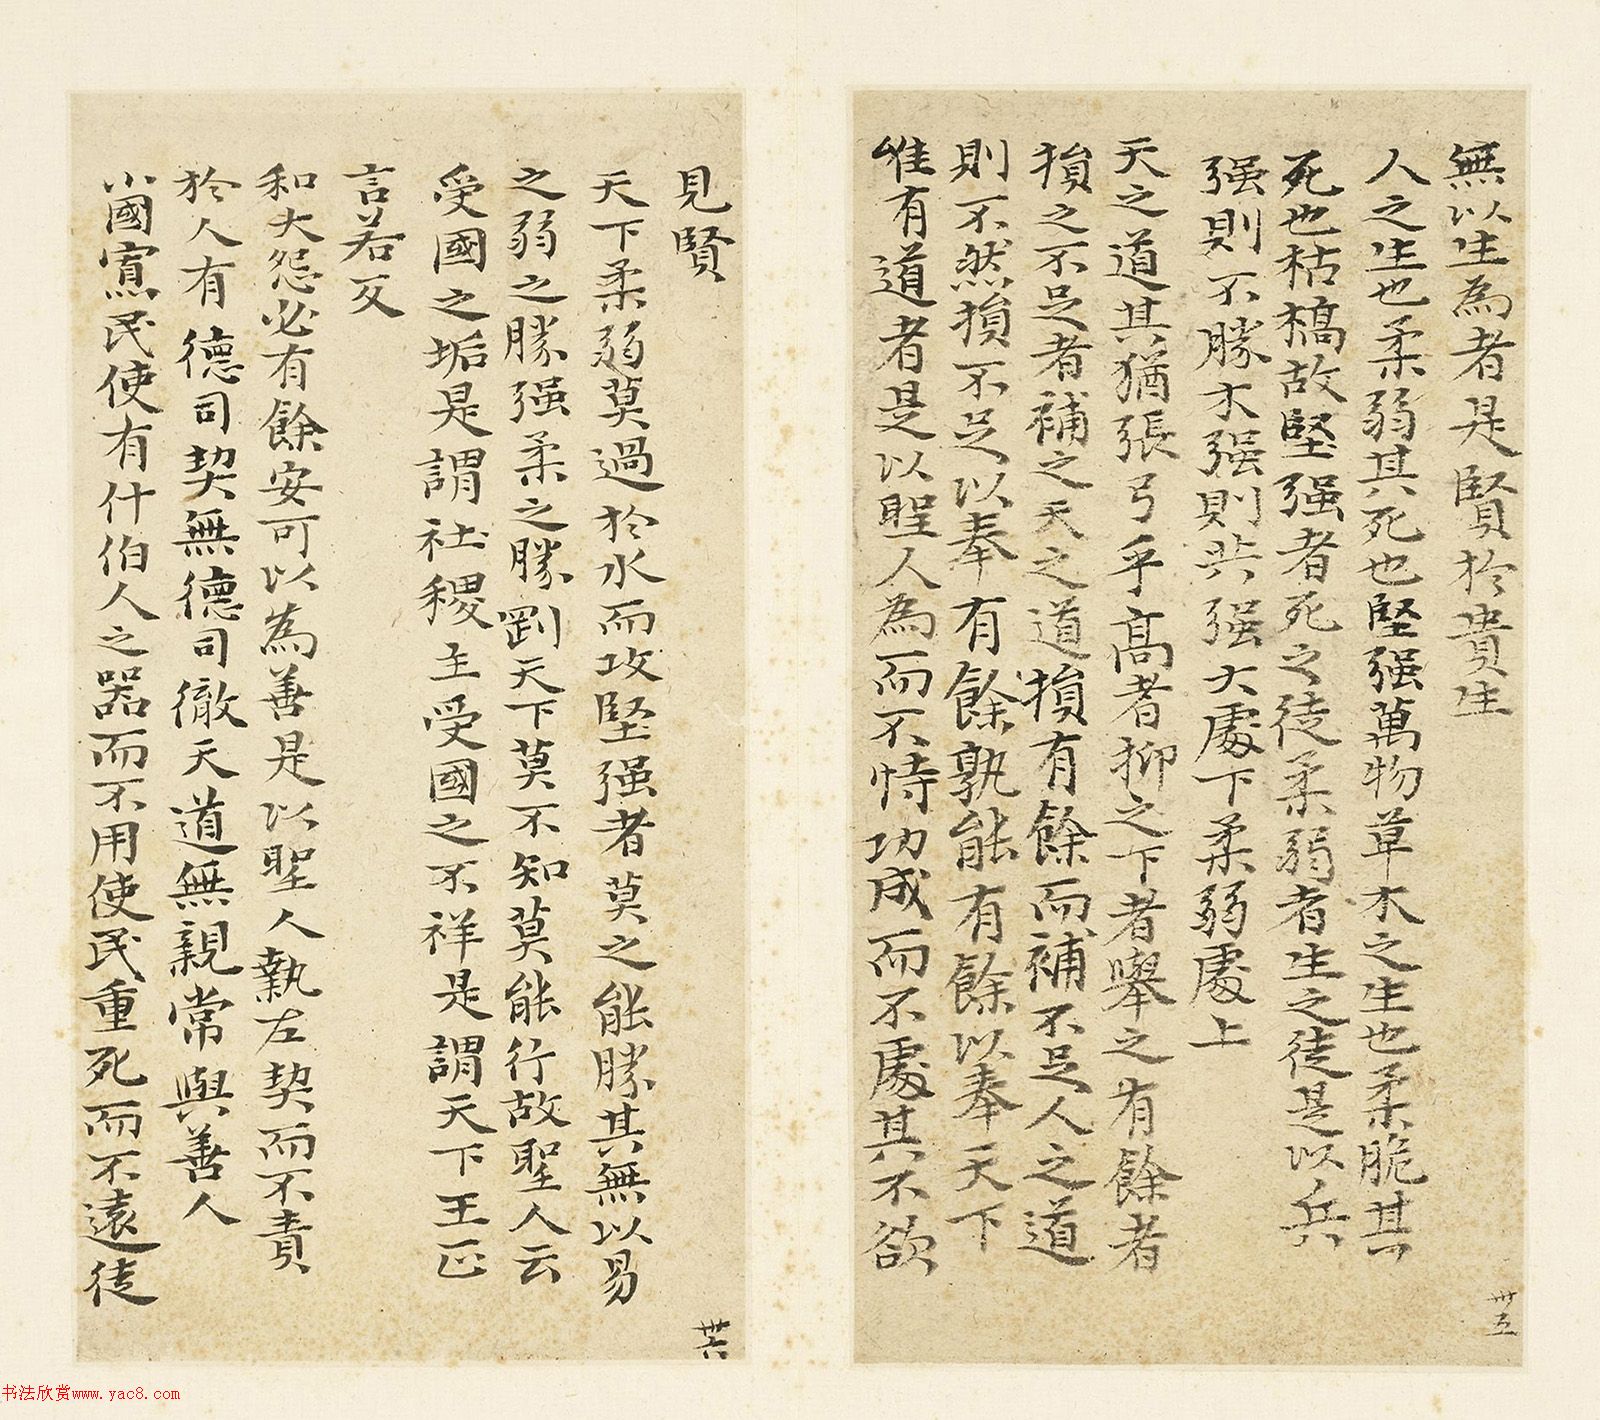 無以生為者是賢於貴生
人之生也柔弱其死也堅强萬物草木之生也柔脆其
死也枯槁故堅强者死之徒柔弱者生之徒是以兵
强則不勝木强則共强大處下柔弱處上
天之道其猶張弓乎高者抑之下者舉之有餘者
損之不足者補之天之道損有餘而補不足人之道
則不然損不足以奉有餘孰能有餘以奉天下
惟有道者是以聖人為而不恃功成而不處其不欲
卅五
見賢
天下柔弱莫過於水而攻堅强者莫之能勝其無以易
之弱之勝强柔之勝剛天下莫不知莫能行故聖人云
受國之垢是謂社稷主受國之不祥是謂天下王正
言若反
和大怨必有餘安可以為善是以聖人執左契而不責
於人有德司契無德司徹天道無親常與善人
小國寡民使有什伯人之器而不用使民重死而不遠徙
卅六
书法欣赏www.yac8.com